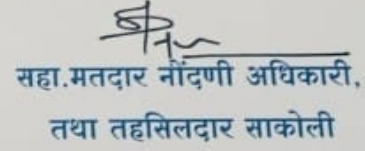 सहा.मतदार नोंदणी अधिकारी,
तथा तहसिलदार साकोली